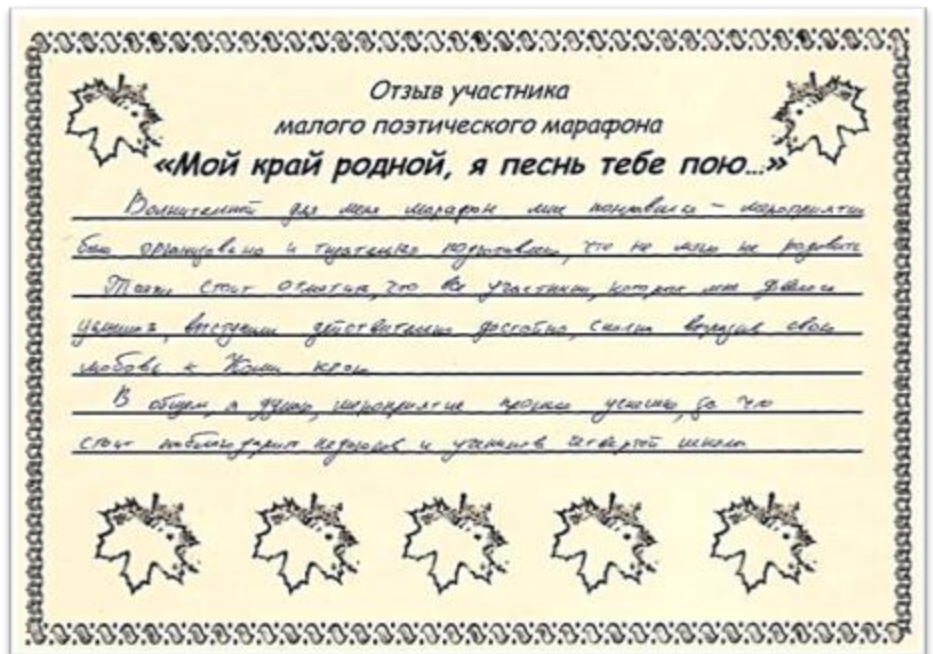 Отзыв участника
малого поэтического марафона
«Мой край родной, я песнь тебе пою…»
для меня марафон мне понравился – мероприятие
было организовано и тщательно подготовлено, что не могло не радовать
Также стоит отметить, что все участники, которых мне довелось
услышать, выступили действительно достойно, сполна выразив свою
любовь к Коми краю
В общем, я думаю, мероприятие прошло успешно, за что
стоит поблагодарить педагогов и учеников четвертой школы